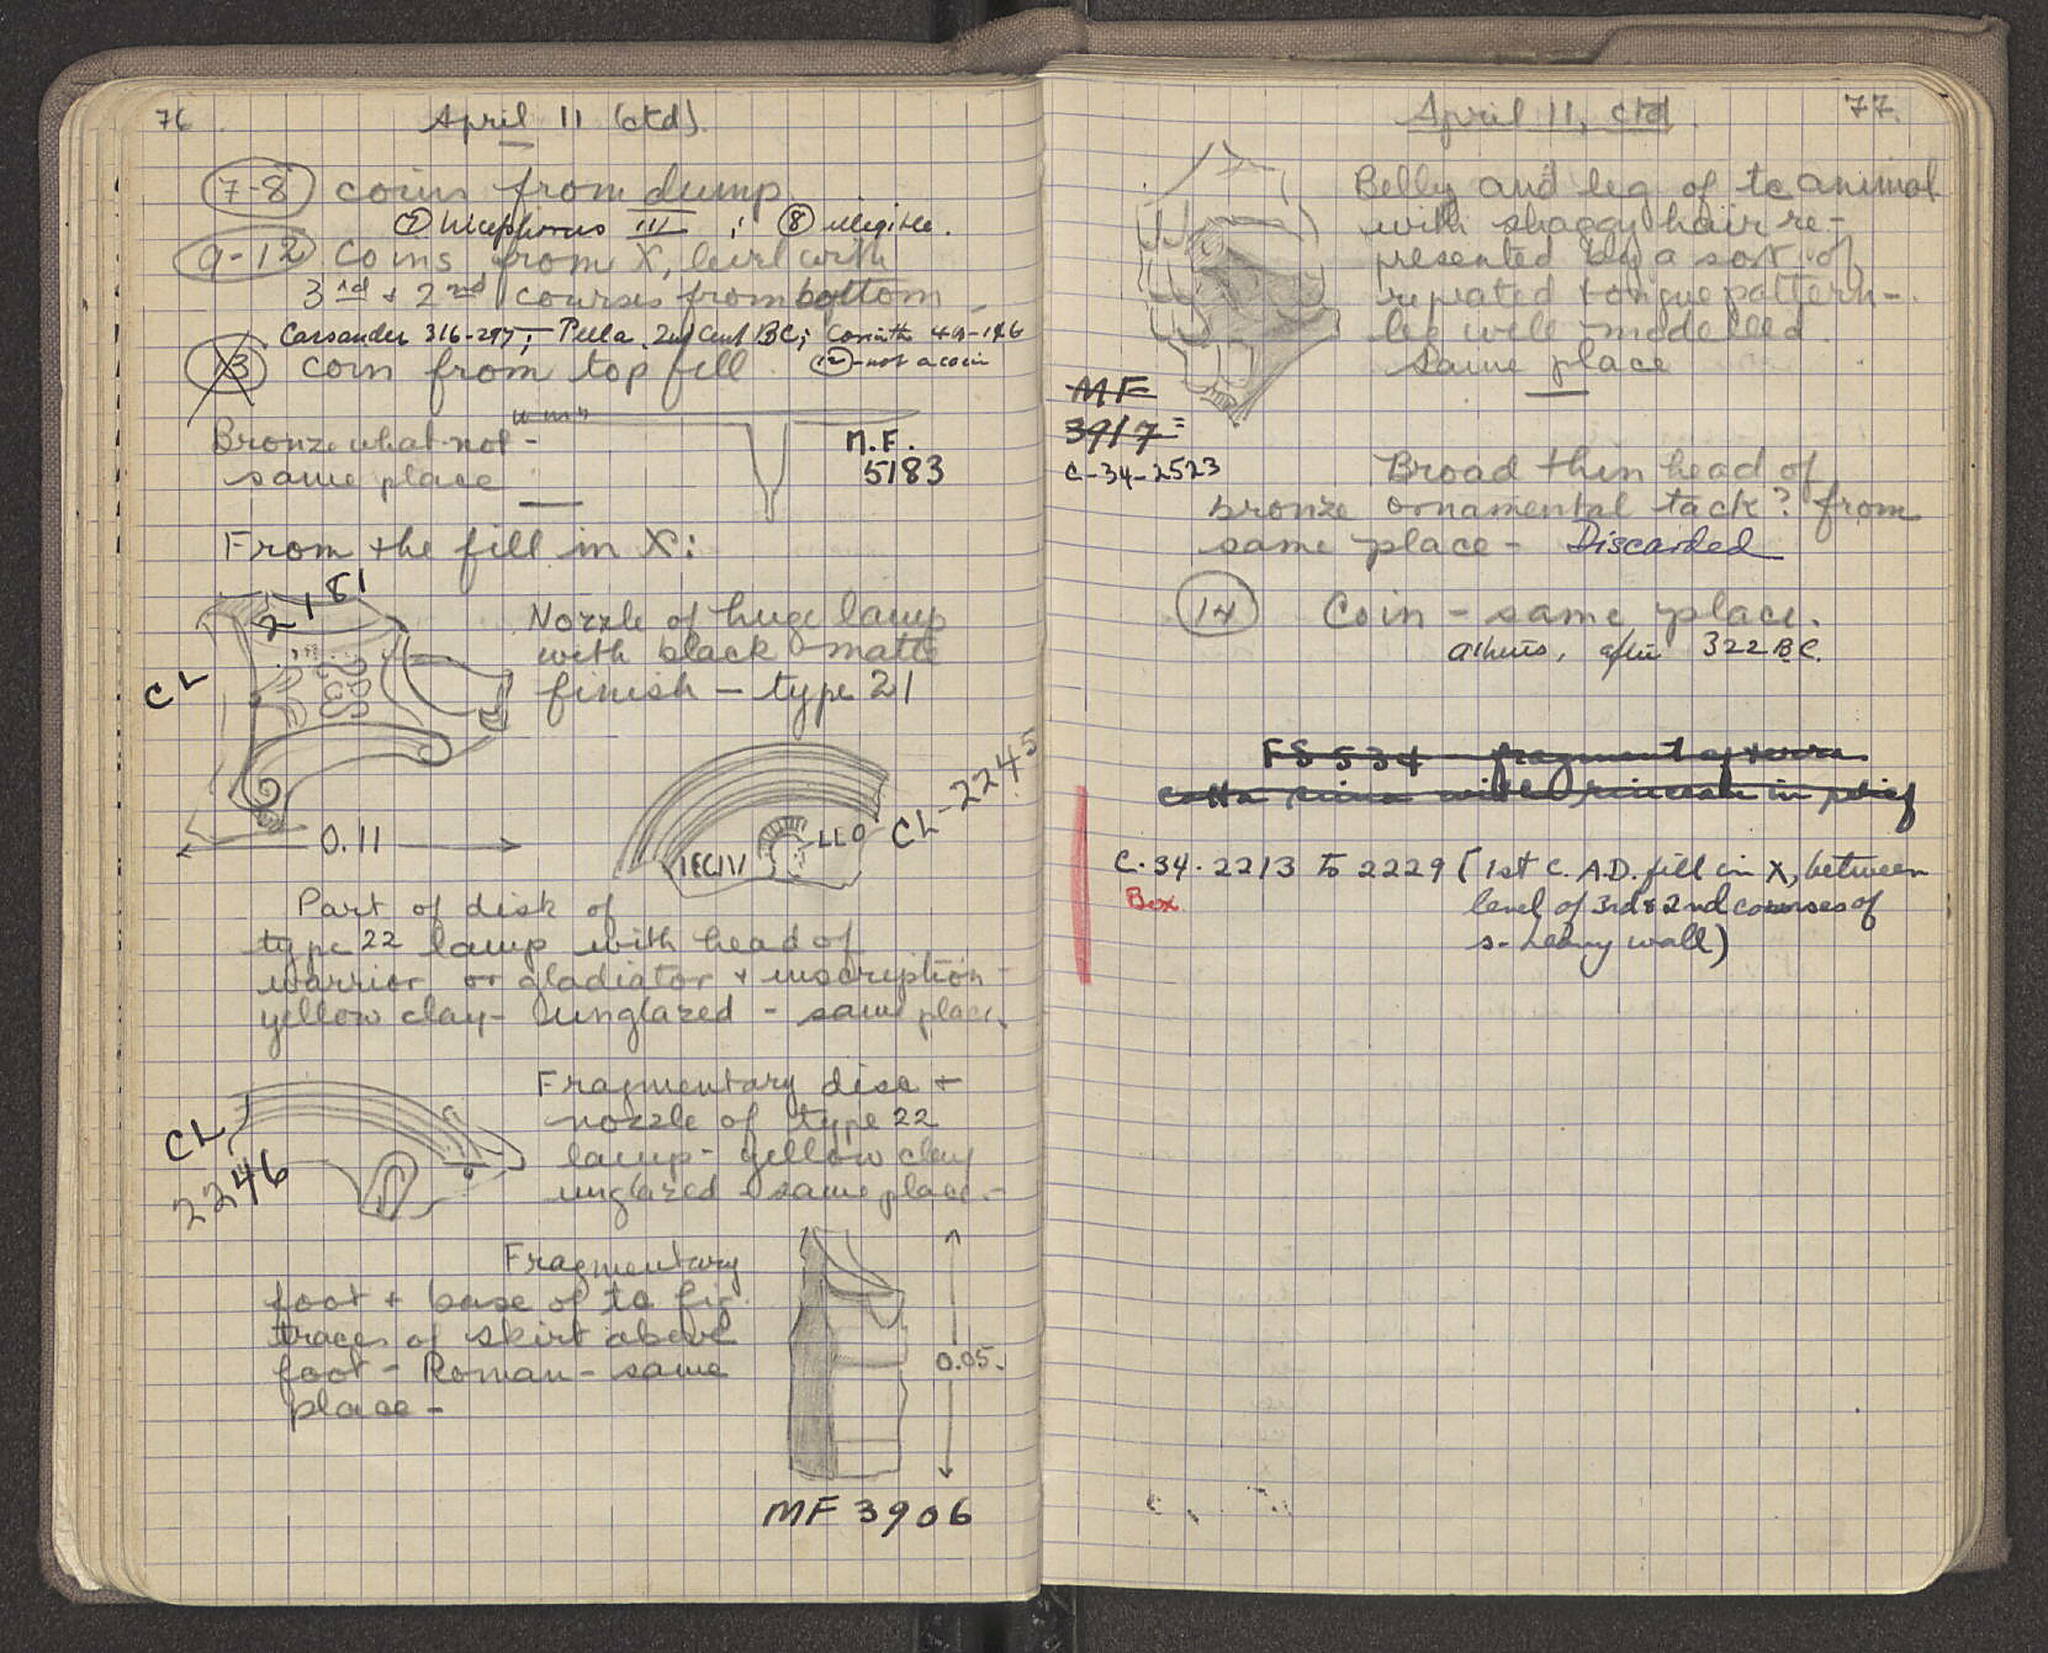 76
April 11 (ctd).
7-8 coins from dump
⑦ Nicephorus III ; ⑧ illegible.
9-12 Coins from X, level with
3rd + 2nd courses from bottom
Cassander 316-297; Pella, 2nd Cent BC; Corinth 44-146
13 coin from top fill ⑫-not a coin
Bronze what-not -
same place
M.F.
5183
From the fill in X:
CL 2181
Nozzle of huge lamp
with black matte
finish - type 21
0.11
IECIV LLO
CL-2245
Part of disk of
type 22 lamp with head of
warrior or gladiator + inscription -
yellow clay - unglazed - same place.
CL
2246
Fragmentary disc +
nozzle of type 22
lamp - yellow clay
unglazed - same place. -
Fragmentary
foot + base of tc fig.
traces of skirt above
foot - Roman - same
place -
0.05.
MF 3906
April 11, ctd. 77.
Belly and leg of tc animal
with shaggy hair re-
presented by a sort of
repeated tongue pattern -
leg well modelled.
Same place
MF
3917 =
C-34-2523
Broad thin head of
bronze ornamental tack? from
same place - Discarded
14 Coin - same place.
Athens, after 322 B.C.
FS 534 - fragment of terra
cotta sima with in relief
C-34-2213 to 2229 [1st C. A.D. fill in X, between
Box
level of 3rd & 2nd courses of
s-heavy wall)